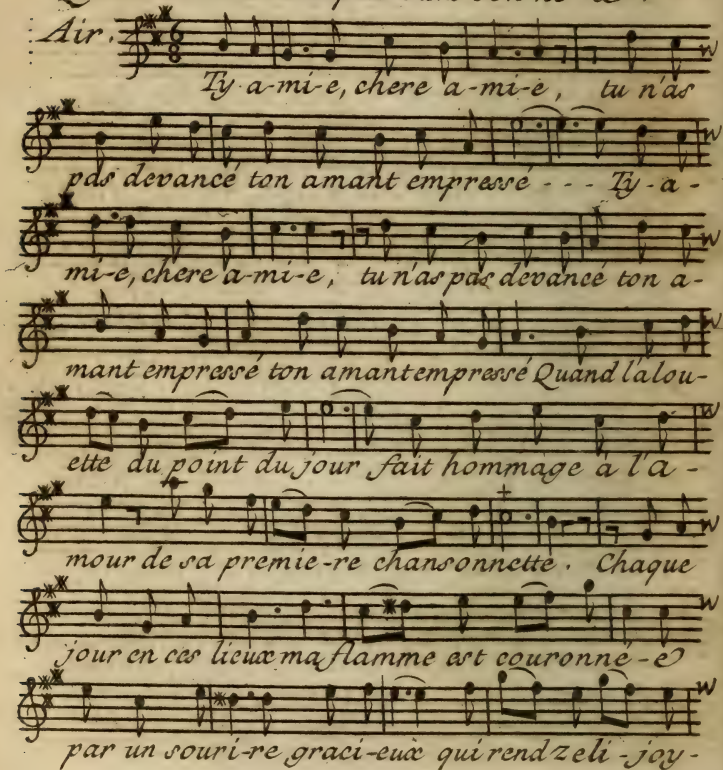 Air.
Ty-a-mi-e, chere a-mi-e, tu n'as
pas devancé ton amant empressé - - - Ty-a-
mi-e, chere a-mi-e, tu n'as pas devancé ton a-
mant empressé ton amant empressé Quand l'alou-
ette du point du jour fait hommage à l'a-
mour de sa premie-re chansonnette. Chaque
jour en ces lieux ma flamme est couronné-e
par un souri-re graci-eux qui rend zeli-joy-